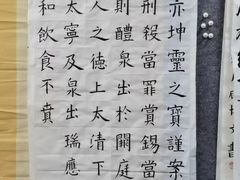 亦坤靈之寶謹案
刑殺當罪賞錫當
則醴泉出於闕庭
人之德上太清下
太寧及泉出瑞應
和飲食不貢
文書